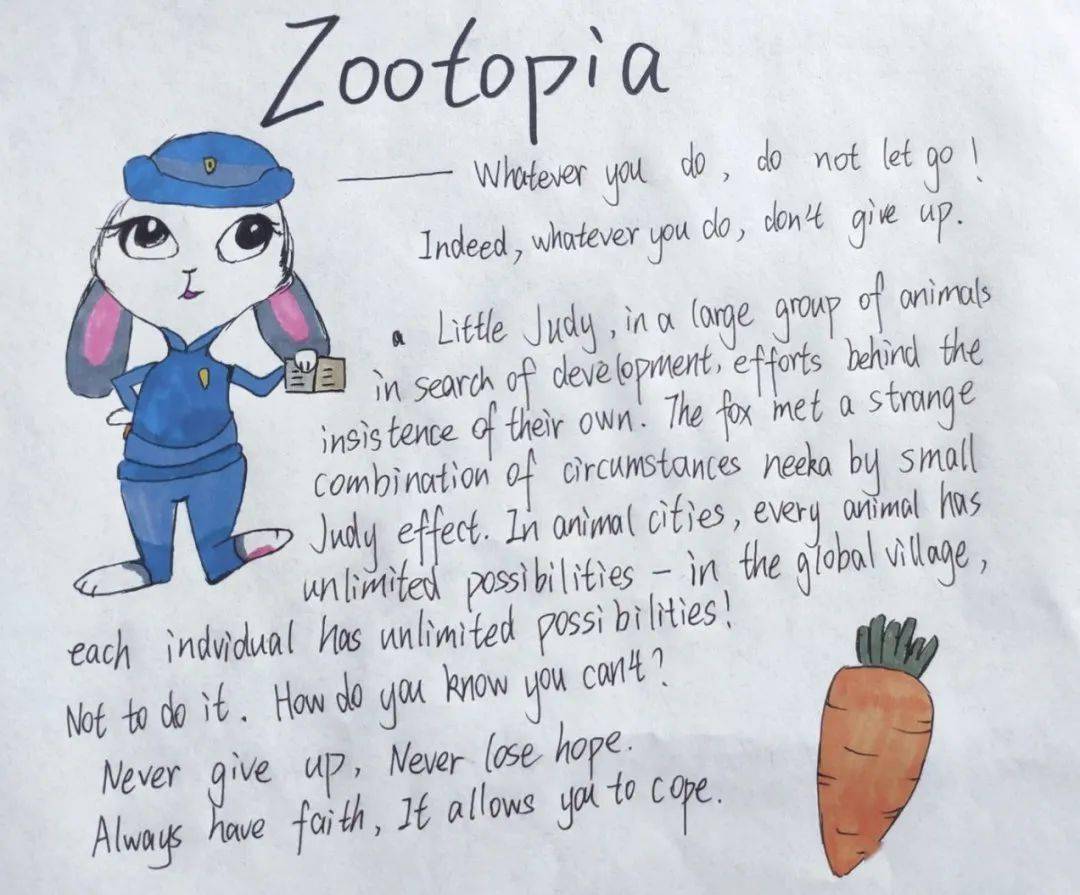 Zootopia
—— Whatever you do, do not let go!
Indeed, whatever you do, don't give up.
a Little Judy, in a large group of animals
in search of development, efforts behind the
insistence of their own. The fox met a strange
combination of circumstances neeka by small
Judy effect. In animal cities, every animal has
unlimited possibilities – in the global village,
each indvidual has unlimited possibilities!
Not to do it. How do you know you can't?
Never give up, Never lose hope.
Always have faith, It allows you to cope.